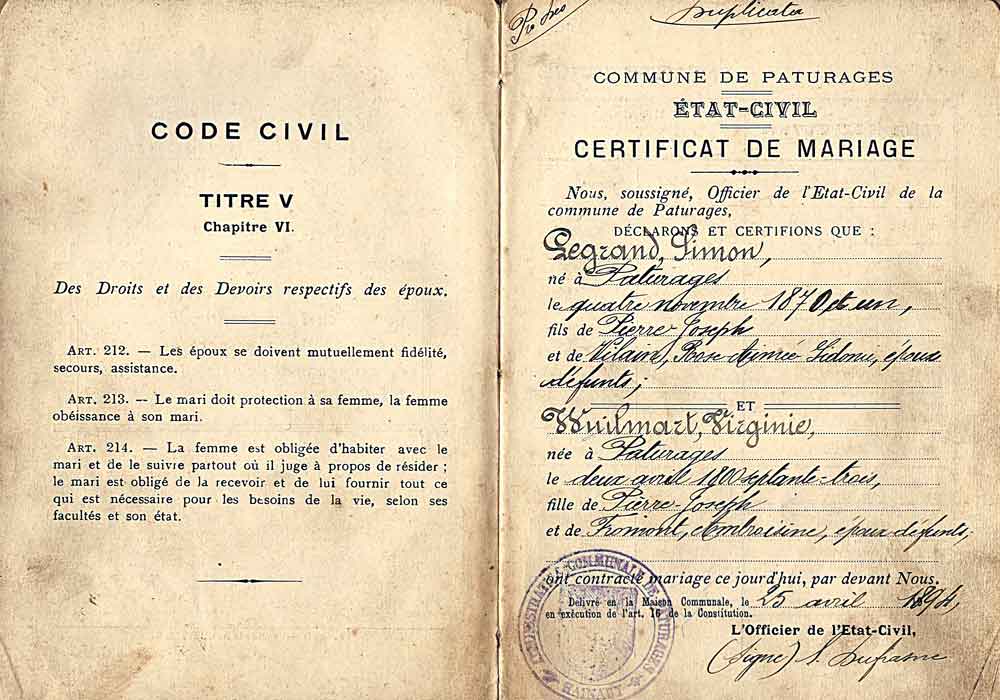 CODE CIVIL
TITRE V
Chapitre VI.
Des Droits et des Devoirs respectifs des époux.
ART. 212. — Les époux se doivent mutuellement fidélité,
secours, assistance.
ART. 213. — Le mari doit protection à sa femme, la femme
obéissance à son mari.
ART. 214. — La femme est obligée d'habiter avec le
mari et de le suivre partout où il juge à propos de résider ;
le mari est obligé de la recevoir et de lui fournir tout ce
qui est nécessaire pour les besoins de la vie, selon ses
facultés et son état.
Pro Deo
Duplicata
COMMUNE DE PATURAGES
ÉTAT-CIVIL
CERTIFICAT DE MARIAGE
Nous, soussigné, Officier de l'Etat-Civil de la
commune de Paturages,
DÉCLARONS ET CERTIFIONS QUE :
Legrand, Simon,
né à Paturages
le quatre novembre 1870 et un,
fils de Pierre-Joseph
et de Vilain, Rose-Aimée Sidonie, époux
défunts ;
ET
Wuilmart, Virginie,
née à Paturages
le deux avril 1800 septante-trois,
fille de Pierre-Joseph
et de Fromont, Ambroisine, époux défunts,
ont contracté mariage ce jourd'hui, par devant Nous.
Délivré en la Maison Communale, le 25 avril 1894,
en exécution de l'art. 16 de la Constitution.
L'Officier de l'Etat-Civil,
(Signé) S. Dufrasne
ADMINISTRATION COMMUNALE DE PATURAGES
HAINAUT